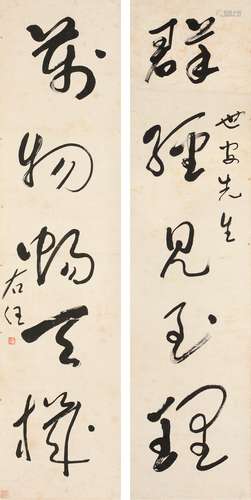 群經見至理
世安先生
萬物暢天機
右任